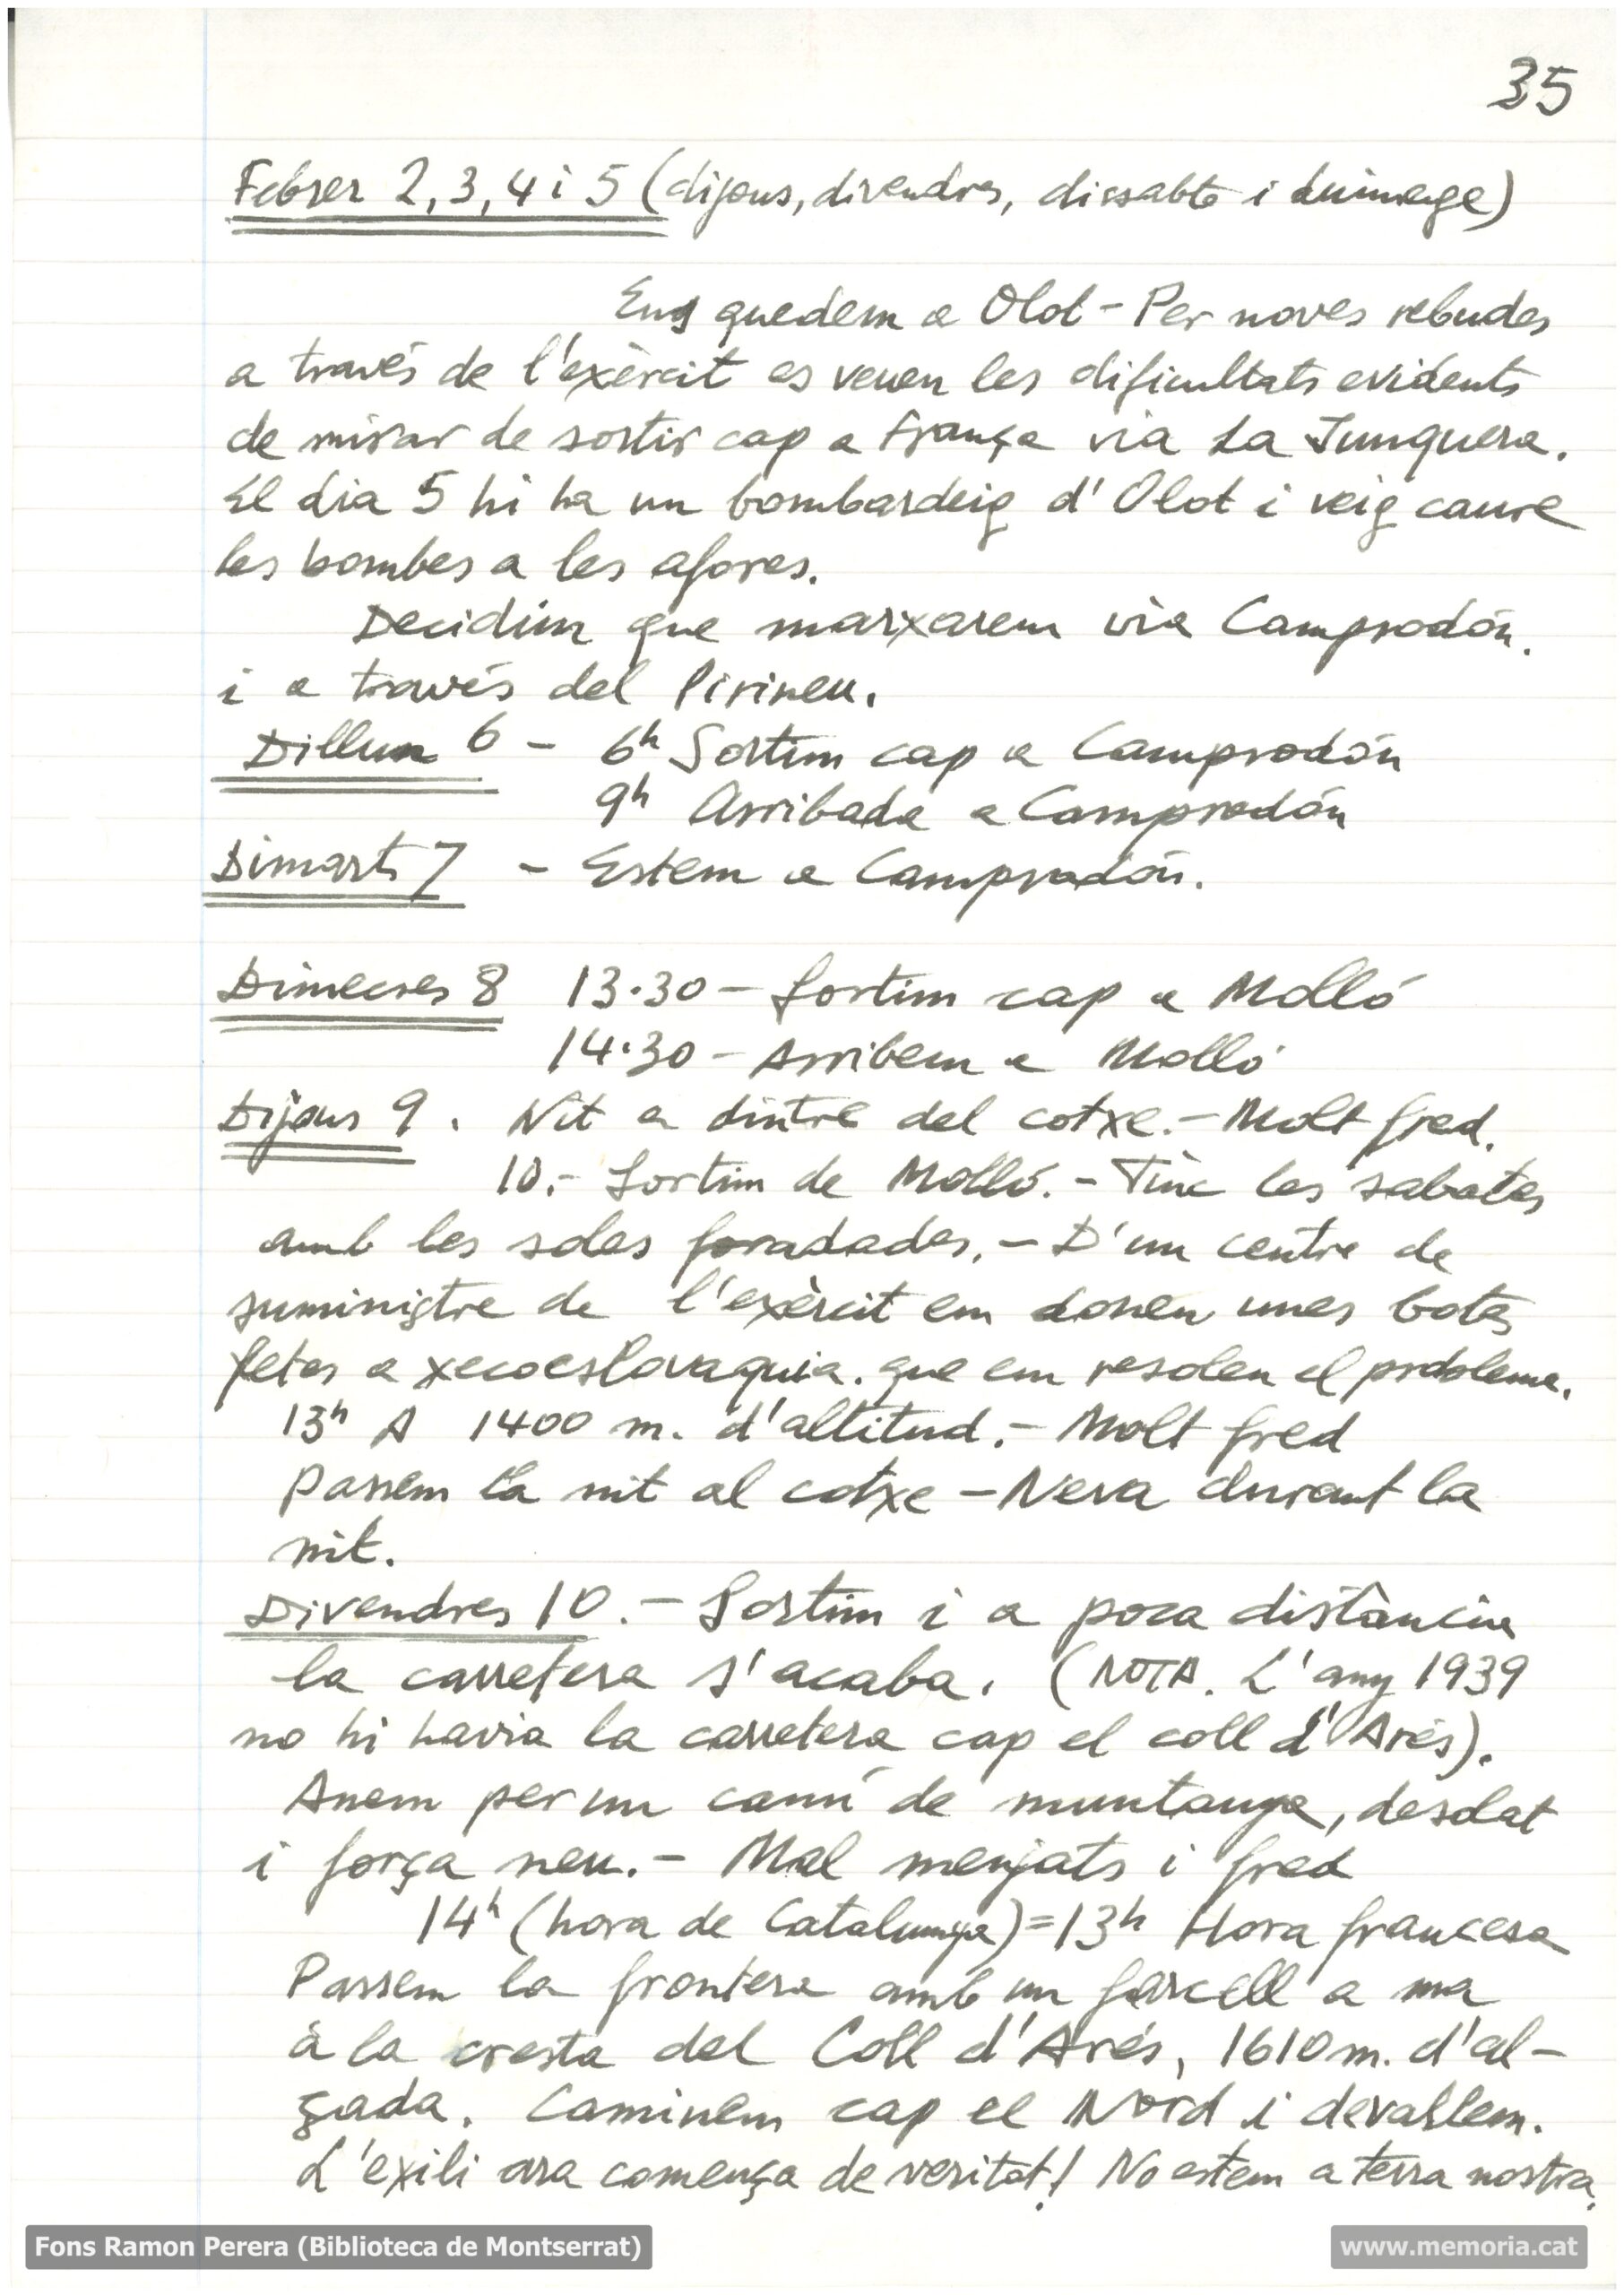 35
Febrer 2, 3, 4 i 5 (dijous, divendres, dissabte i diumenge)
Ens quedem a Olot - Per noves rebudes
a través de l'exèrcit es veuen les dificultats evidents
de mirar de sortir cap a França via La Junquera.
El dia 5 hi ha un bombardeig d'Olot i veig caure
les bombes a les afores.
Decidim que marxarem via Camprodón.
i a través del Pirineu.
Dillun 6 - 6h Sortim cap a Camprodón
9h Arribada a Camprodón
Dimarts 7 - Estem a Camprodón.
Dimecres 8 13·30 - Sortim cap a Molló
14·30 - Arribem a Molló
Dijous 9. Nit a dintre del cotxe. - Molt fred.
10.- Sortim de Molló. - Tinc les sabates
amb les soles foradades. - D'un centre de
suministre de l'exèrcit em donen unes botes
fetes a xecoeslovaquia. que em resolen el problema.
13h A 1400 m. d'altitud. - Molt fred
Passem la nit al cotxe - Neva durant la
nit.
Divendres 10. - Sortim i a poca distància
la carretera s'acaba. (NOTA. L'any 1939
no hi havia la carretera cap el coll d'Arés).
Anem per un camí de muntanya, desolat
i força neu. - Mal menjats i fred
14h (hora de Catalunya) = 13h Hora francesa
Passem la frontera amb un farcell a ma
à la cresta del Coll d'Arés, 1610 m. d'al-
çada. Caminem cap el Nord i devallem.
L'exili ara comença de veritat! No estem a terra nostra.
Fons Ramon Perera (Biblioteca de Montserrat)
www.memoria.cat